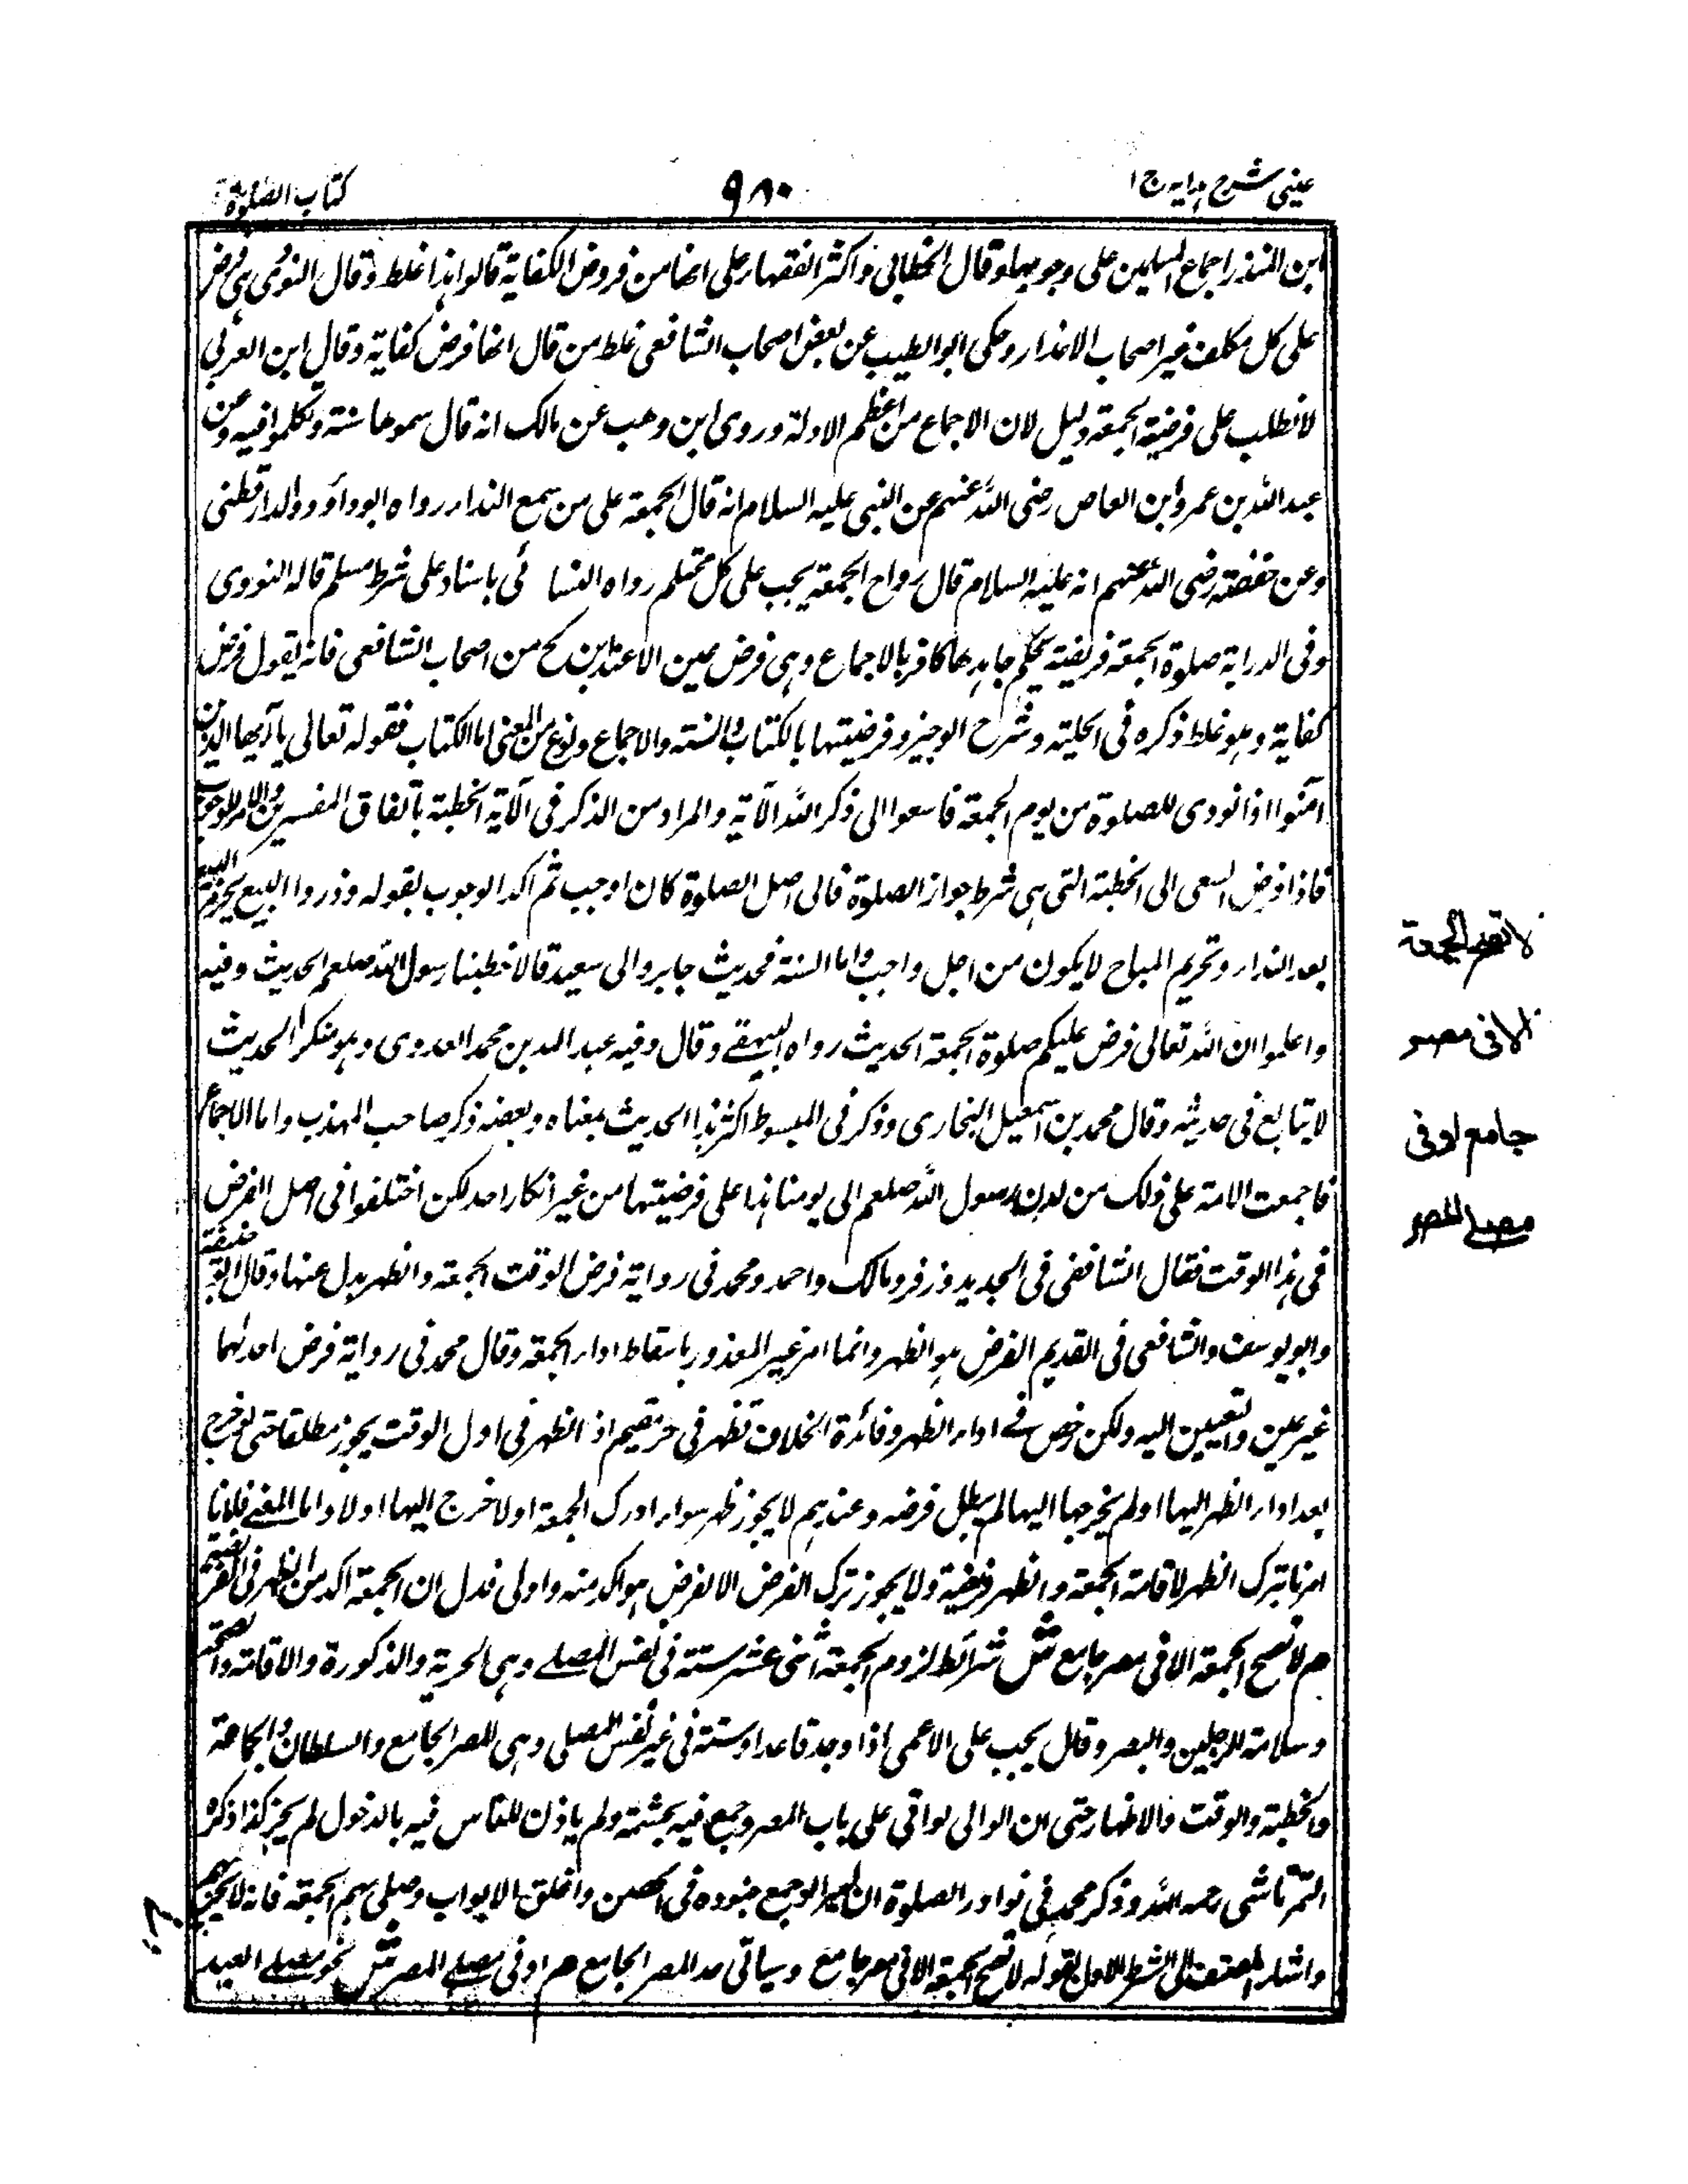 عينى شرح ہدايہ ج ١
٩٨٠
كتاب الصلوة
ابن المنذر اجماع المسلمين على وجوبها وقال الخطابى واكثر الفقهاء على انها من فروض الكفاية قالوا هذا غلط وقال النووى هى فرض
على كل مكلف غير اصحاب الاعذار وحكى ابو الطيب عن بعض اصحاب الشافعى غلط من قال انها فرض كفاية وقال ابن العربى
لا نطلب على فرضية الجمعة دليل لان الاجماع من اعظم الادلة وروى ابن وهب عن مالك انه قال سموها سنة وتكلموا فيه وعن
عبد الله بن عمرو ابن العاص رضى الله عنهم عن النبى عليه السلام انه قال الجمعة على من سمع النداء رواه ابو داؤد والدارقطنى
وعن حفصة رضى الله عنهم انه عليه السلام قال رواح الجمعة يجب على كل محتلم رواه النسائى باسناد على شرط مسلم قاله النووى
وفى الدراية صلوة الجمعة فريضة محكم جاحدها كافر بالاجماع وهى فرض عين الا عند ابن كج من اصحاب الشافعى فانه يقول فرض
كفاية وهو غلط ذكره فى الحلية وشرح الوجيز وفرضيتها بالكتاب والسنة والاجماع ونوع من المعنى اما الكتاب فقوله تعالى يا ايها الذين
آمنوا اذا نودى للصلوة من يوم الجمعة فاسعوا الى ذكر الله الآية والمراد من الذكر فى الآية الخطبة باتفاق المفسرين والامر للوجوب
فاذا فرض السعى الى الخطبة التى هى شرط جواز الصلوة فالى اصل الصلوة كان اوجب ثم اكد الوجوب بقوله وذروا البيع بحرمة البيع
بعد النداء وتحريم المباح لا يكون من اجل واجب واما السنة فحديث جابر وابى سعيد قالا خطبنا رسول الله صلعم الحديث وفيه
واعلموا ان الله تعالى فرض عليكم صلوة الجمعة الحديث رواه البيهقى وقال وفيه عبد الله بن محمد العدوى وهو منكر الحديث
لا يتابع فى حديثه وقال محمد بن اسمعيل البخارى وذكر فى المبسوط اكثر هذا الحديث بمعناه وبعضه ذكر صاحب المهذب واما الاجماع
فاجمعت الامة على ذلك من لدن رسول الله صلعم الى يومنا هذا على فرضيتها من غير انكار احد لكن اختلفوا فى اصل الفرض
فى هذا الوقت فقال الشافعى فى الجديد وزفر ومالك واحمد ومحمد فى رواية فرض الوقت الجمعة والظهر بدل عنها وقال ابو حنيفة
وابو يوسف والشافعى فى القديم الفرض هو الظهر وانما امر غير المعذور باسقاط اداء الجمعة وقال محمد فى رواية فرض احدهما
غير عين والتعيين اليه ولكن رخص فى اداء الظهر وفائدة الخلاف تظهر فى حر مقيم اذ الظهر فى اول الوقت يجوز مطلقا حتى لو خرج
بعد اداء الظهر اليها او لم يخرجها اليها لم يبطل فرضه وعندهم لا يجوز ظهر سواء ادرك الجمعة او لا خرج اليها او لا واما المعنى فلانا
امرنا بترك الظهر لاقامة الجمعة والظهر فريضة ولا يجوز ترك الفرض الا لفرض هو اكد منه واولى فدل ان الجمعة اكد من الظهر فى الفرضية
هم لا تصح الجمعة الا فى مصر جامع ش شرائط لزوم الجمعة اثنى عشر ستة فى نفس المصلى وهى الحرية والذكورة والاقامة والصحة
وسلامة الرجلين والبصر وقال يجب على الاعمى اذا وجد قاعدا وستة فى غير نفس المصلى وهى المصر الجامع والسلطان والجماعة
والخطبة والوقت والاظهار حتى ان الوالى لو اقى على باب المصر وجمع فيه بحشمة ولم ياذن للناس فيه بالدخول لم يجز كذا ذكره
التمرتاشى رحمه الله وذكر محمد فى نوادر الصلوة ان الامير لو جمع جنوده فى الحصن واغلق الابواب وصلى بهم الجمعة فانه لا يجزيهم
واشار المصنف الى الشرط الاول بقوله لا تصح الجمعة الا فى مصر جامع وسياتى حد المصر الجامع هم او فى مصلى المصر ش نحو مصلى العيد
لا تصح الجمعة
الا فى مصر
جامع او فى
مصلى المصر